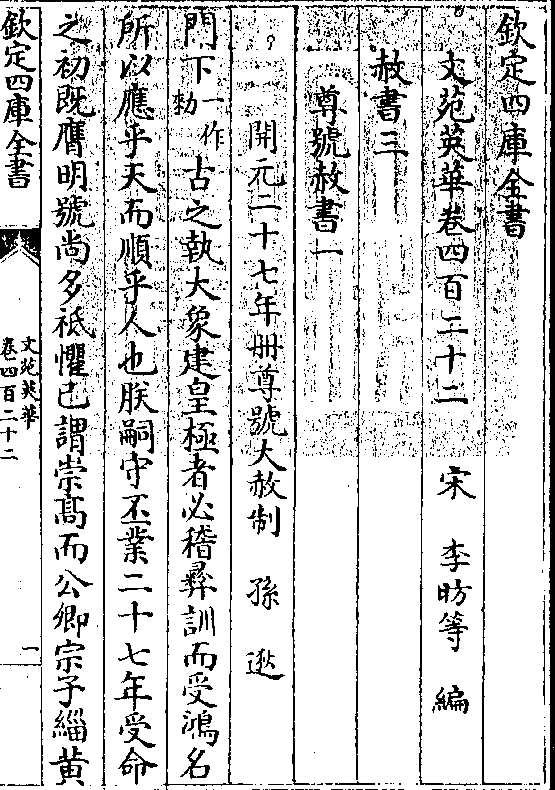 欽定四庫全書
文苑英華卷四百二十二 宋 李昉等 編
赦書三
尊號赦書一
開元二十七年冊尊號大赦制 孫逖
門下一作勑古之執大象建皇極者必稽彛訓而受鴻名
所以應乎天而順乎人也朕嗣守丕業二十七年受命
之初既膺明號尚多祗懼已謂崇髙而公卿宗子緇黄
欽定四庫全書
文苑英華
卷四百二十二
一